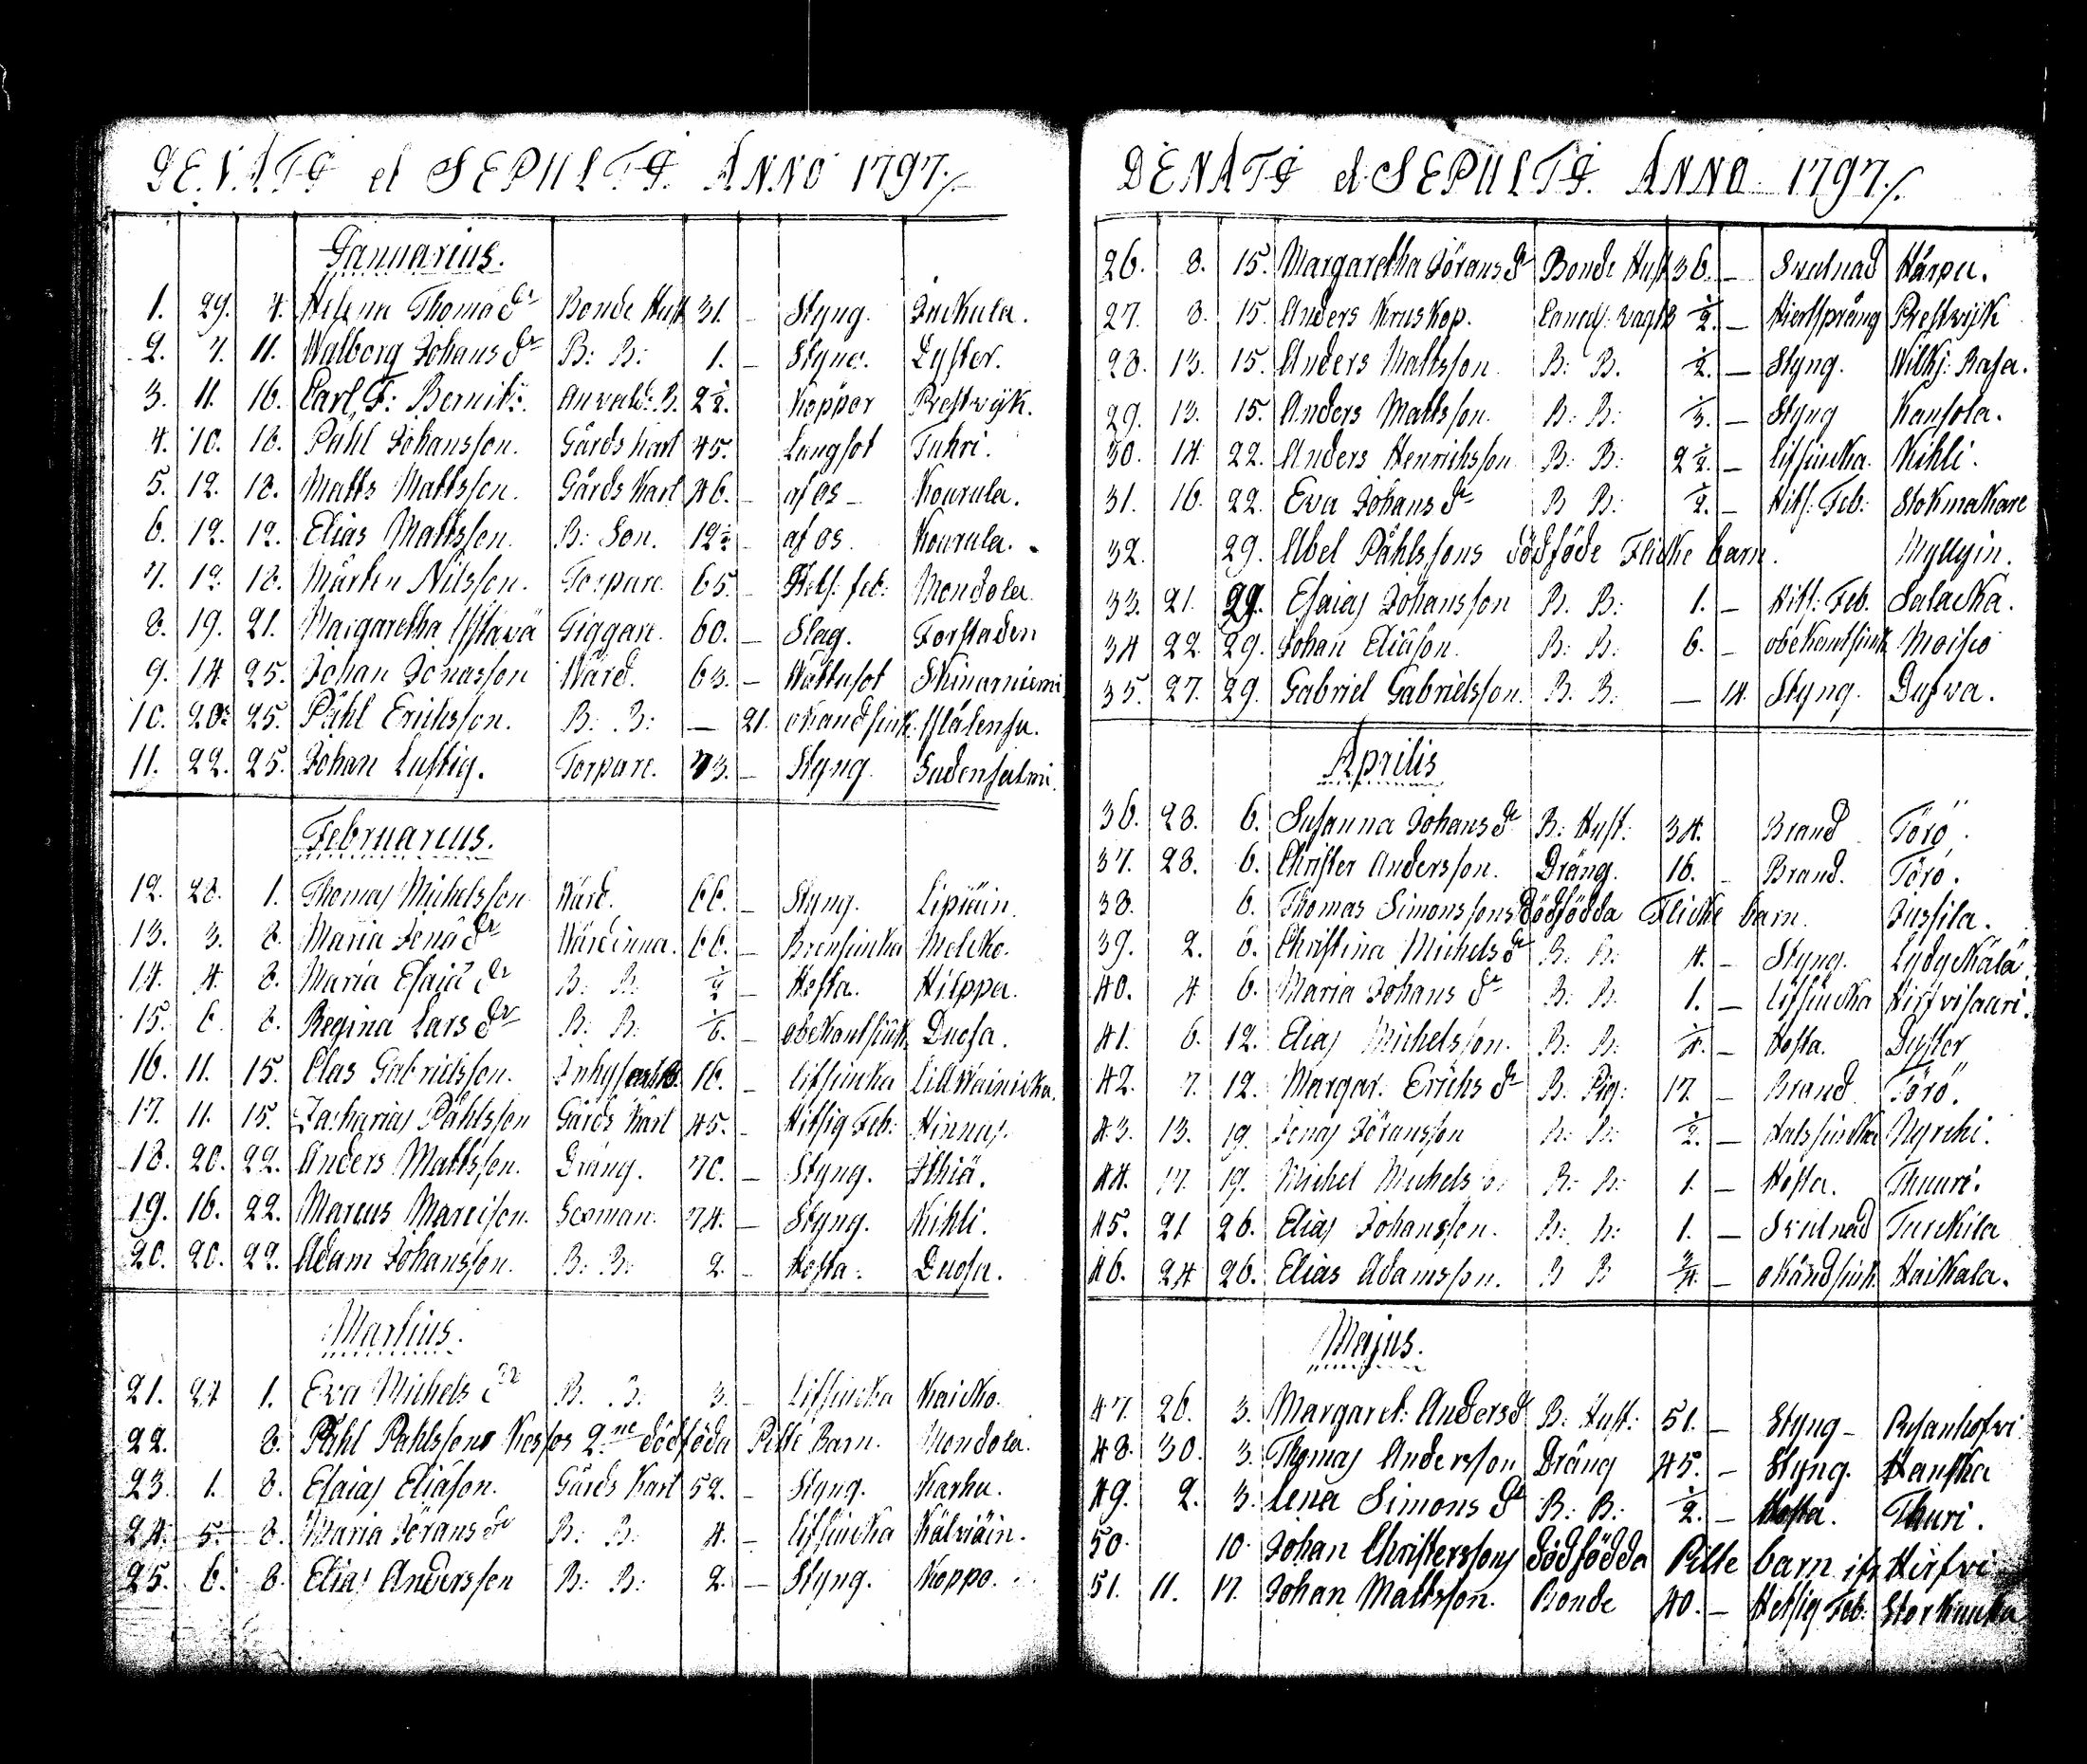 DENATI et SEPULTI. ANNO 1797./
Januarius.
1. 29. 4. Helena Thomædr Bonde Hust 31. — Styng. Juckula.
2. 7. 11. Walborg Johansdr B: B: 1. — Styng. Dyster.
3. 11. 16. Carl F: Anvald: B. 2½. Koppor Prestwijk.
4. 10. 18. Påhl Johansson. Gårds Karl 45. Lungsot Tuhri.
5. 12. 18. Matts Mattsson. Gårds Karl 46. — af os — Kourula.
6. 12. 12. Elias Mattsson. B: Son. 12½ — af os. Kourula.
7. 12. 18. Mårten Nilsson. Torpare. 65. — Hets: feb: Mondola.
8. 19. 21. Margaretha Tiggare. 60. — Slag. Torstaden
9. 14. 25. Johan Jonasson Wärd. 63. — Wattusot Skinarniemi.
10. 20. 25. Påhl Erichsson. B: B: — 21. okänd siuk:
11. 22. 25. Johan Lustig. Torpare. 73. — Styng. Sudensalmi.
Februarius.
12. 28. 1. Thomas Michelsson Wärd. 66. — Styng. Lipiäin.
13. 3. 8. Maria Jonædr Wärdinna. 66. — Brensiucka Molcko.
14. 4. 8. Maria Esaiædr B: B: ½ — Hosta. Hilppa.
15. 6. 8. Regina Larsdr B: B: 1/6. — obekant siuk. Duosa.
16. 11. 15. Clas Gabrielsson. 16. — Litsiucka Lill Wainicka.
17. 11. 15. Zacharias Påhlsson Gårds Karl 45. — Hitsig Feb: Hinnas.
18. 20. 22. Anders Mattsson. Dräng. 70. — Styng. Ithiä.
19. 16. 22. Marcus Marcison. Soxman. 74. — Styng. Kihli.
20. 20. 22. Adam Johansson. B: B: 2. — Hosta. Duosa.
Martius.
21. 24. 1. Eva Michelsdr B. B: 3. — Litsiucka Kaicko.
22. 8. Påhl Påhlssons 2.ne dödföda Pilte Barn. Mondola.
23. 1. 8. Esaias Eliæson. Gårds Karl 52. — Styng. Karhu.
24. 5. 8. Maria Jöransdr B: B: 4. — Litsiucka Kälviäin.
25. 6. 8. Elias Andersson B: B: 2. — Styng. Koppo.
DENATI et SEPULTI. ANNO 1797./.
26. 8. 15. Margaretha Jöransdr Bonde Hust 36. — Svulnad Härpu.
27. 8. 15. Anders Kruskop. ½. — Hiertsprång Prestwijk
28. 13. 15. Anders Mattsson. B: B. ½. — Styng. Wilkj: Rasa.
29. 13. 15. Anders Mattsson. B: B: ⅓. — Styng Kansola.
30. 14. 22. Anders Henrichsson B: B: 2½. — Litsiucka. Kihli.
31. 16. 22. Eva Johansdr B B: ½. — Hits: Feb: Stokmakare
32. 29. Abel Påhlssons dödföde Flicke barn. Myllyin.
33. 21. 29. Esaias Johansson B. B: 1. — Hits: Feb. Salacka.
34 22. 29. Johan Eliæson. B: B: 6. — obekant siuk Moisio
35. 27. 29. Gabriel Gabrielsson. B. B: — 14. Styng. Dufva.
Aprilis
36. 28. 6. Susanna Johansdr B: Hust: 34. Brand Törö.
37. 28. 6. Christer Andersson. Dräng. 16. — Brand. Törö.
38. 6. Thomas Simonssons Dödfödda Flicke barn. Jussila.
39. 2. 6. Christina Michelsdr B: B: 4. — Styng. Lydyckälä.
40. 4 6. Maria Johansdr B: B. 1. — Litsiucka Hirfvisauri.
41. 6. 12. Elias Michelsson. B: B: ¼. — Hosta. Dyster
42. 7. 12. Margar. Erichsdr B. Pig: 17. — Brand Törö.
43. 13. 19. Jonas Jöransson B: B: ½. — Halssiucka Nyrcki.
44. 17. 19. Michel Michelsson B: B: 1. — Hosta. Thuuri.
45. 21 26. Elias Johansson. B: B: 1. — Svulnad Turckila
46. 24 26. Elias Adamsson. B B ¾. — okänd siuk. Haikala.
Majus.
47. 26. 3. Margaret: Andersdr B: Hust: 51. — Styng — Rusanhofvi
48. 30. 3. Thomas Andersson Dräng 45. — Styng. Hanska
49. 2. 3. Lena Simonsdr B: B: ½. — Hosta. Thuri.
50. 10. Johan Christerssons Dödfödda Pilte barn Hirfvi
51. 11. 17. Johan Mattsson. Bonde 40. — Hetsig Feb: Storkuucka